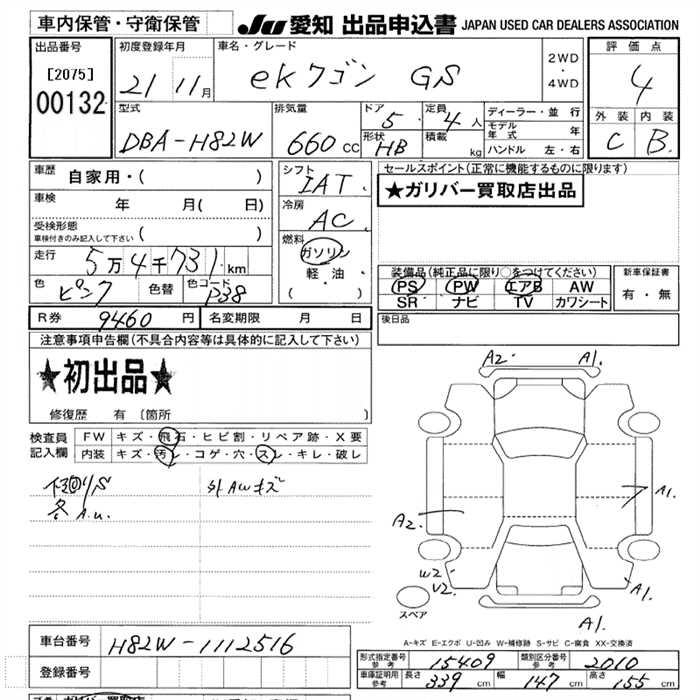 車内保管・守衛保管
JU 愛知 出品申込書 JAPAN USED CAR DEALERS ASSOCIATION
出品番号
[2075]
00132
初度登録年月
21 11月
車名・グレード
ekワゴン GS
2WD
・
4WD
評価点
4
型式
DBA-H82W
排気量
660 cc
ドア
5
定員
4人
形状
HB
積載
kg
ディーラー・並行
モデル年式 年
ハンドル 左・右
外装 内装
C B
車歴
自家用・( )
車検
年 月( 日)
受検形態
車検付きのみ記入して下さい ( )
走行
5万4千731km
色
ピンク
色替
色コード
P38
シフト
IAT
冷房
AC
燃料
ガソリン
軽・油
( ・ )
セールスポイント(正常に機能するものに限ります)
★ガリバー買取店出品
装備品(純正品に限り○をつけてください)
PS PW エアB AW
SR ナビ TV カワシート
新車保証書
有・無
R券 9460円
名変期限 月 日
後日品
注意事項申告欄(不具合内容等は具体的に記入して下さい)
★初出品★
修復歴 有 〔箇所
検査員
記入欄
FW キズ・飛石・ヒビ割・リペア跡・X要
内装 キズ・汚レ・コゲ・穴・スレ・キレ・破レ
外AWキズ
A2 A1.
A2 A1.
W2
V2
A1.
A1.
スペア
A-キズ E-エクボ U-凹み W-補修跡 S-サビ C-腐食 XX-交換済
車台番号
H82W-1112516
登録番号
型式指定番号
参考
15409
類別区分番号
参考
2010
車庫証明用
参考
長さ 339 cm
幅 147 cm
高さ 155 cm